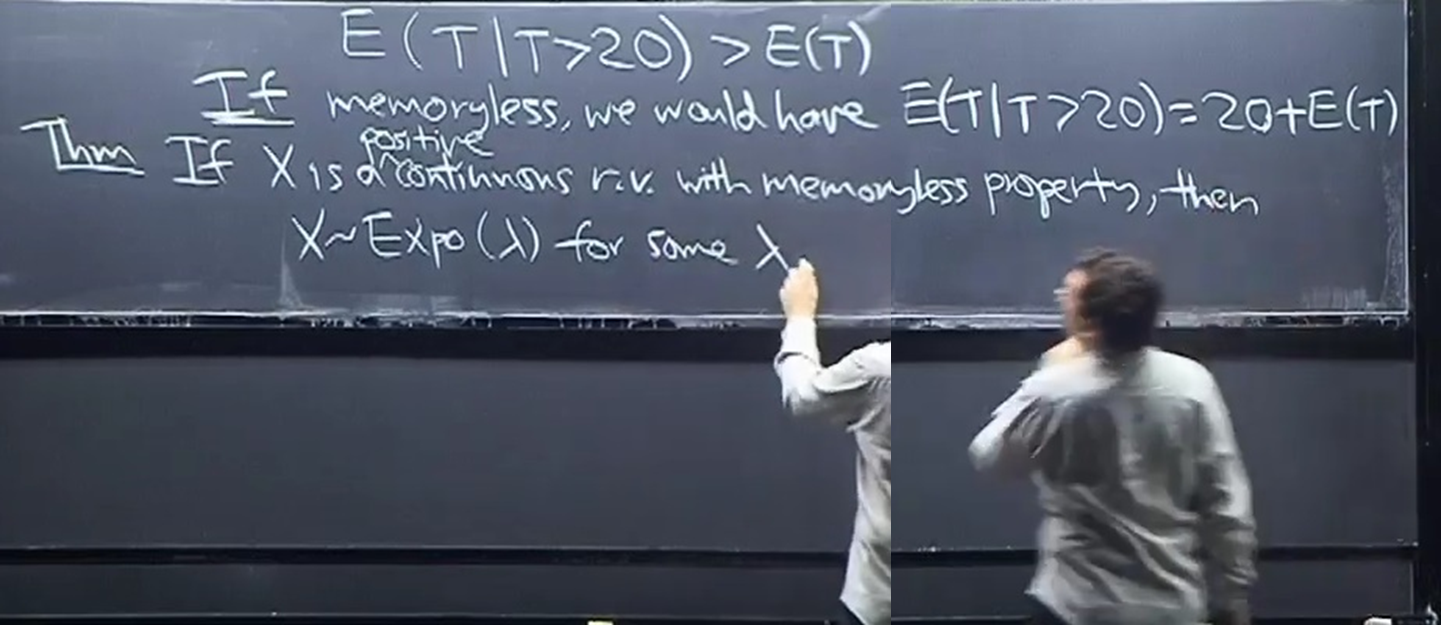 E(T|T>20) > E(T)
If memoryless, we would have E(T|T>20)=20+E(T)
Thm If X is a positive continuous r.v. with memoryless property, then
X~Expo(λ) for some λ